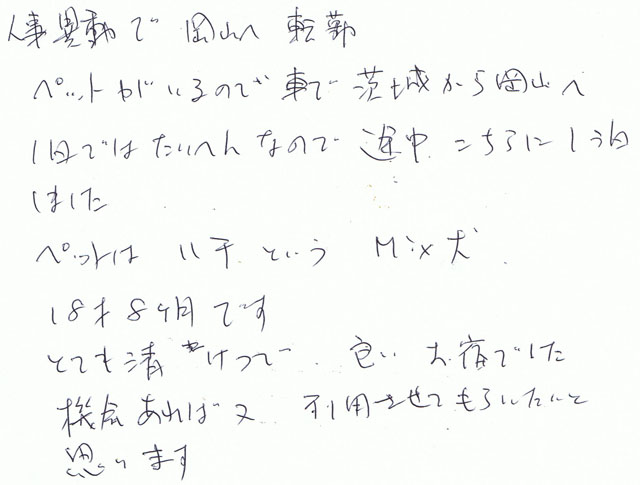 人事異動で 岡山へ 転勤
ペットがいるので車で茨城から岡山へ
1日ではたいへんなので途中こちらに1泊
しました
ペットは ハチ という Mix犬
18才8ヶ月です
とても清けつで 良い お宿でした
機会あれば又 利用させてもらいたいと
思います